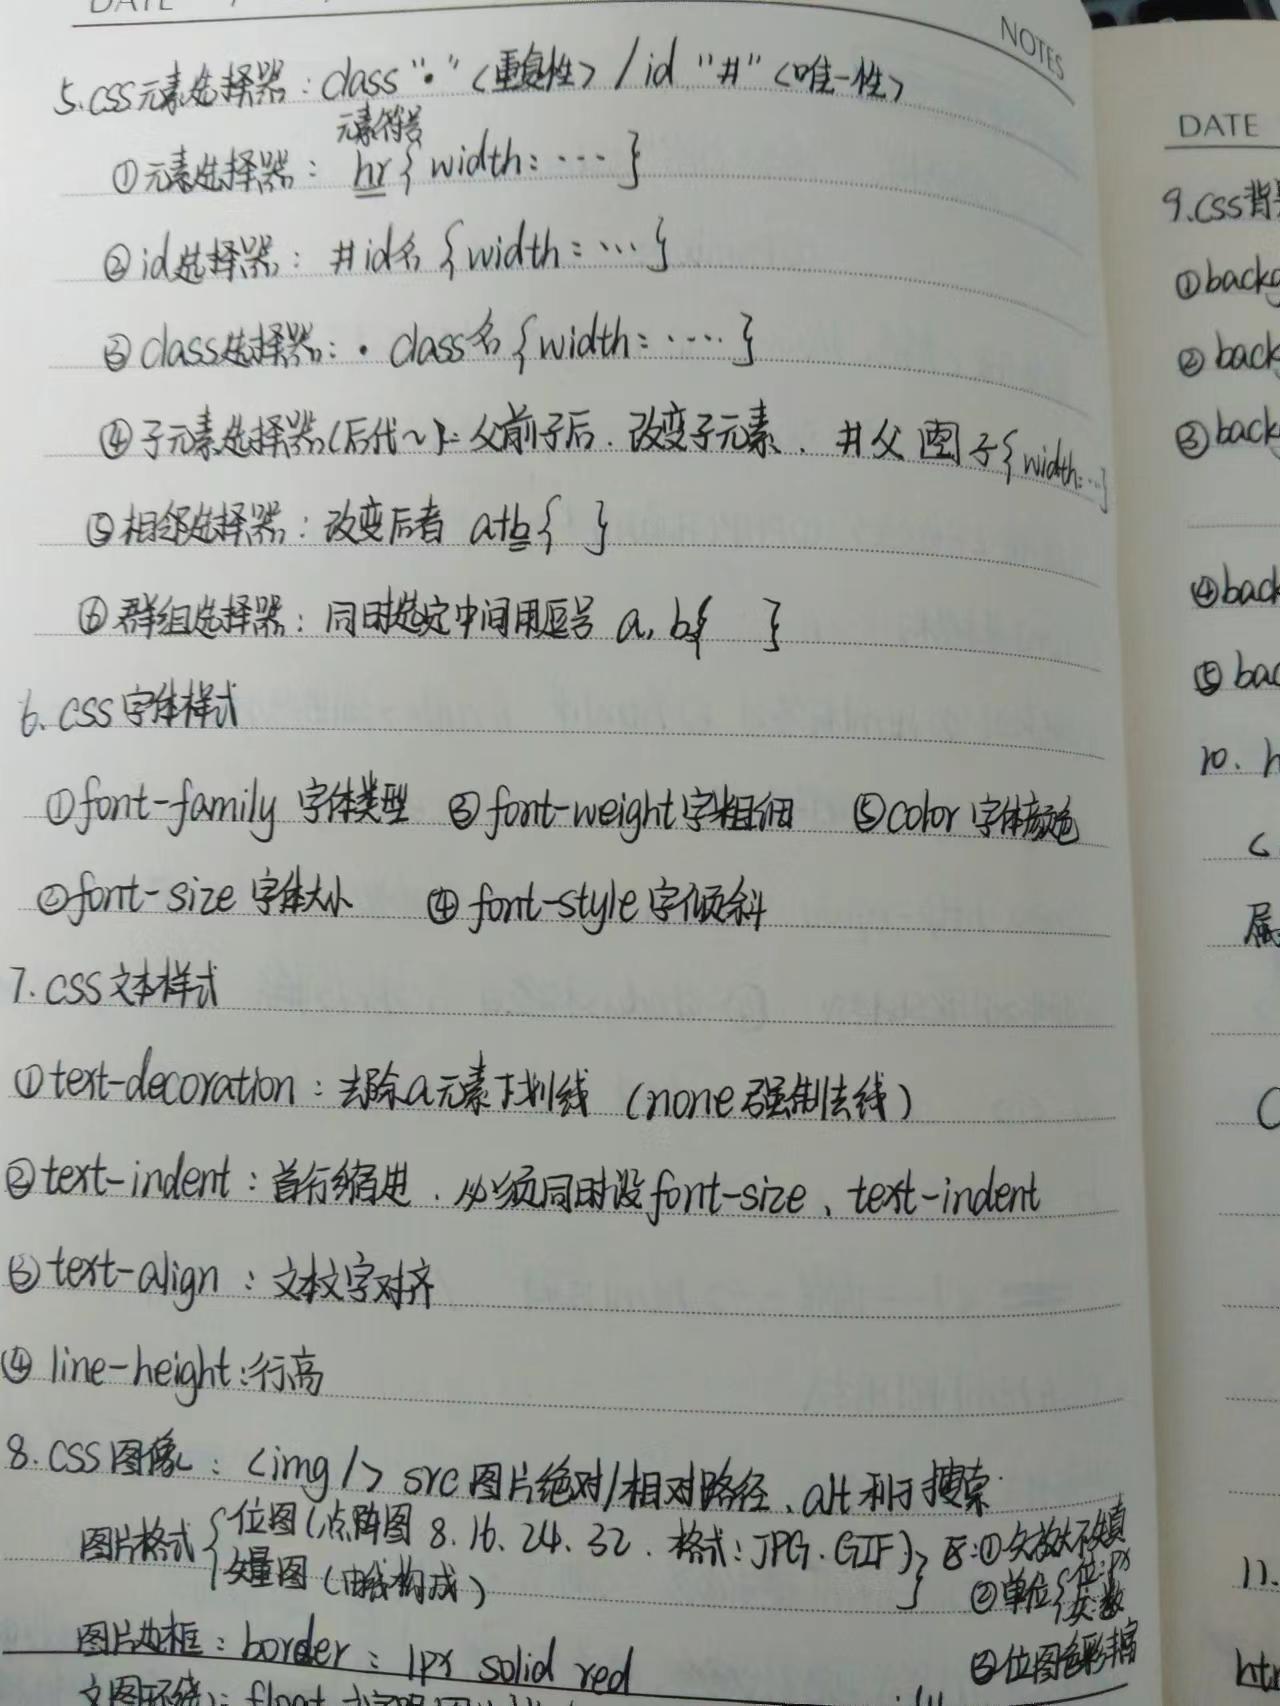 DATE
NOTES
5.CSS元素选择器：class "·" <重复性> / id "#" <唯一性>
元素符号
①元素选择器：hr{ width: ··· }
②id选择器：#id名{width: ···}
③class选择器：· class名{width: ····}
④子元素选择器(后代~)：父前子后. 改变子元素. #父 子{width: ···}
⑤相邻选择器：改变后者 a+b{ }
⑥群组选择器：同时选定中间用逗号 a, b{ }
6. CSS字体样式
①font-family 字体类型 ③font-weight字粗细 ⑤color字体颜色
②font-size 字体大小 ④font-style字倾斜
7. CSS文本样式
①text-decoration：去除a元素下划线 (none强制去线)
②text-indent：首行缩进. 必须同时设font-size、text-indent
③text-align：文本文字对齐
④ line-height:行高
8. CSS图像：<img /> src图片绝对/相对路径、alt利于搜索.
图片格式{位图(点阵图 8.16.24.32. 格式：JPG.GIF)
矢量图 (由线构成)
①矢放大不失真
②单位{位:px
矢:数
③位图色彩
图片边框：border：1px solid red
float
DATE
9.CSS背
①backg
②back
③back
④back
⑤bac
10. h
属
11.
htm